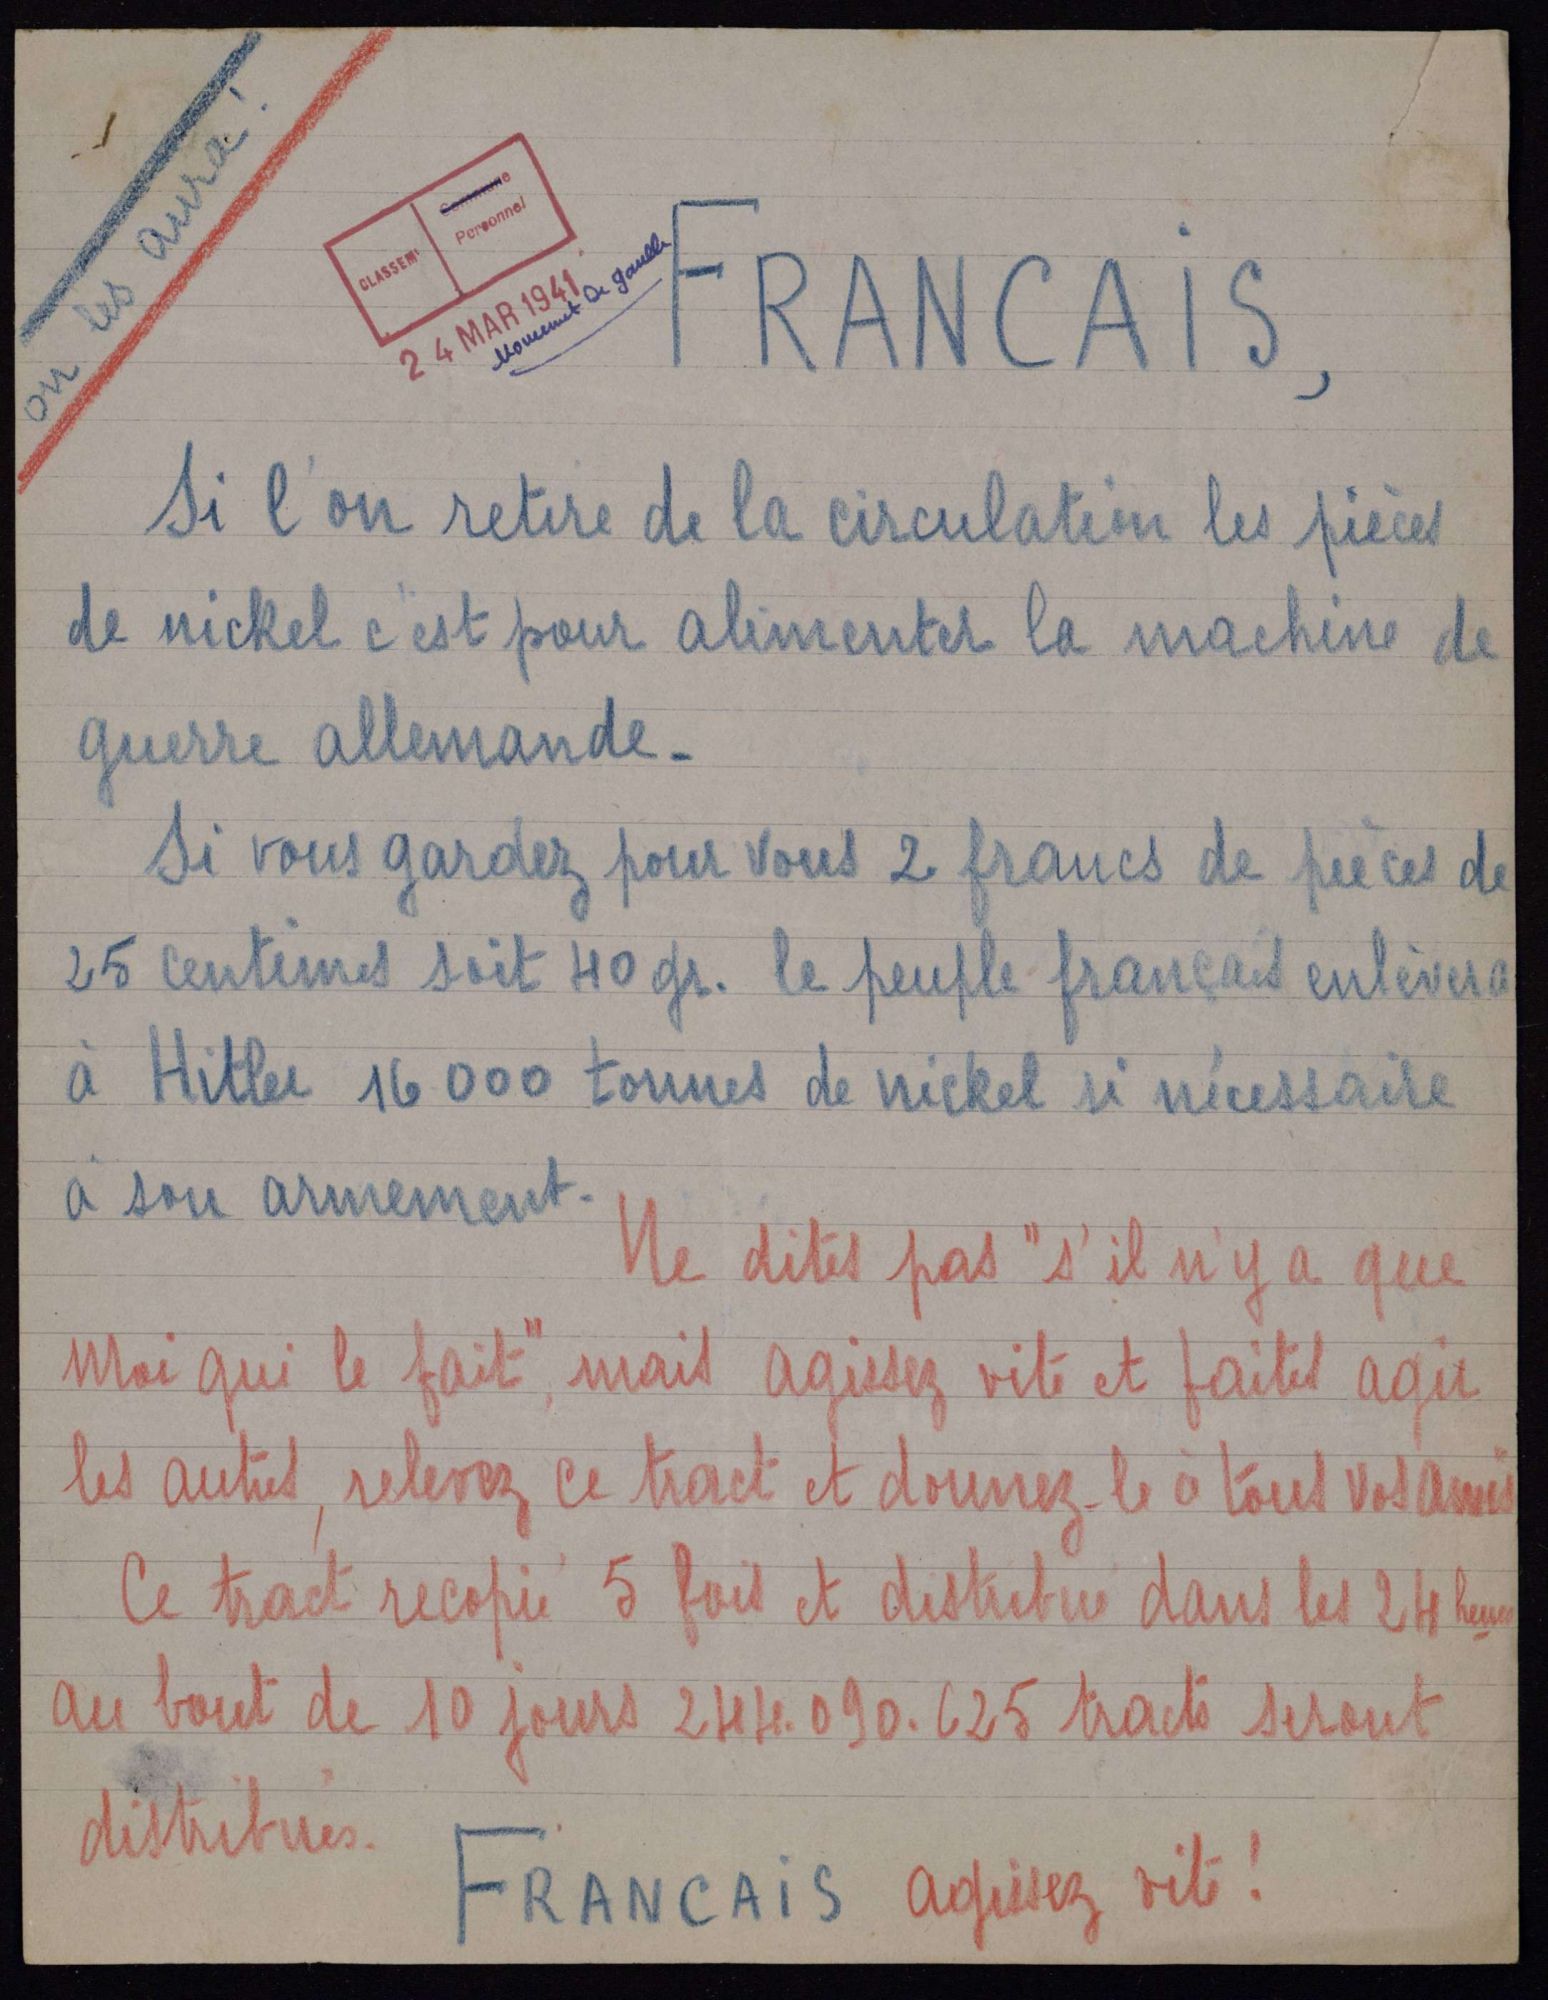 on les aura !
CLASSEMt
Commune
Personnel
24 MAR 1941
Mouvement De Gaulle
FRANCAIS,
Si l'on retire de la circulation les pièces
de nickel c'est pour alimenter la machine de
guerre allemande.
Si vous gardez pour vous 2 francs de pièces de
25 centimes soit 40 gr. le peuple français enlèvera
à Hitler 16 000 tonnes de nickel si nécessaire
à son armement.
Ne dites pas "s'il n'y a que
moi qui le fait", mais agissez vite et faites agir
les autres, relevez ce tract et donnez-le à tous vos amis
Ce tract recopié 5 fois et distribué dans les 24 heures
au bout de 10 jours 244.090.625 tracts seront
distribués.
FRANCAIS agissez vite !